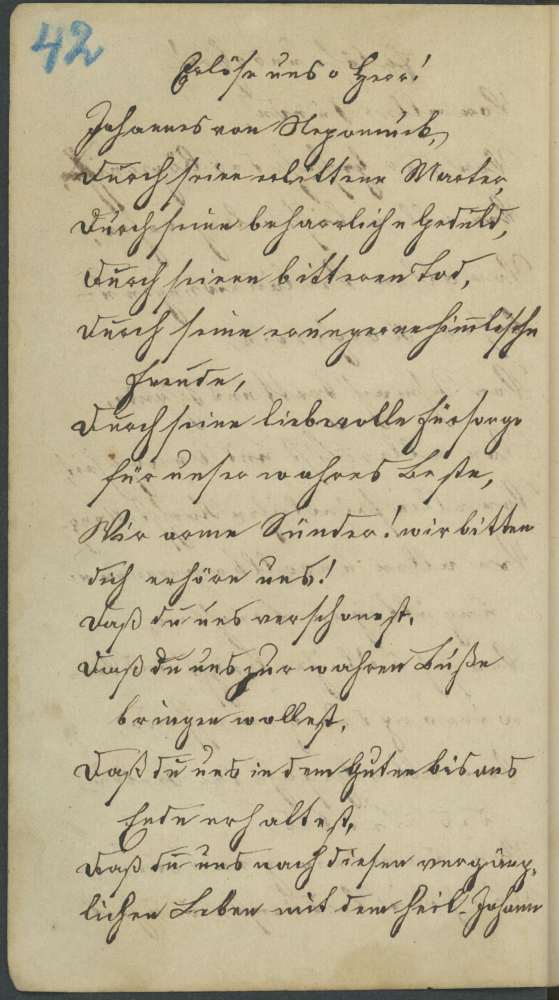 42
Erlöse uns o Herr!
Johannes von Nepomuck,
Durch seine erlittene Marter,
Durch seine beharrliche Geduld,
Durch seinen bitteren Tod,
Durch seine errungene himlische
Freude,
Durch seine liebevolle Fürsorge
für unser wahres Beste,
Wir arme Sünder! wir bitten
dich erhöre uns!
Daß du uns verschonest,
Daß du uns zur wahren Buße
bringen wollest,
Daß du uns in dem Guten bis ans
Ende erhaltest,
Daß du uns nach diesen vergäng-
lichen Leben mit dem heil. Johann